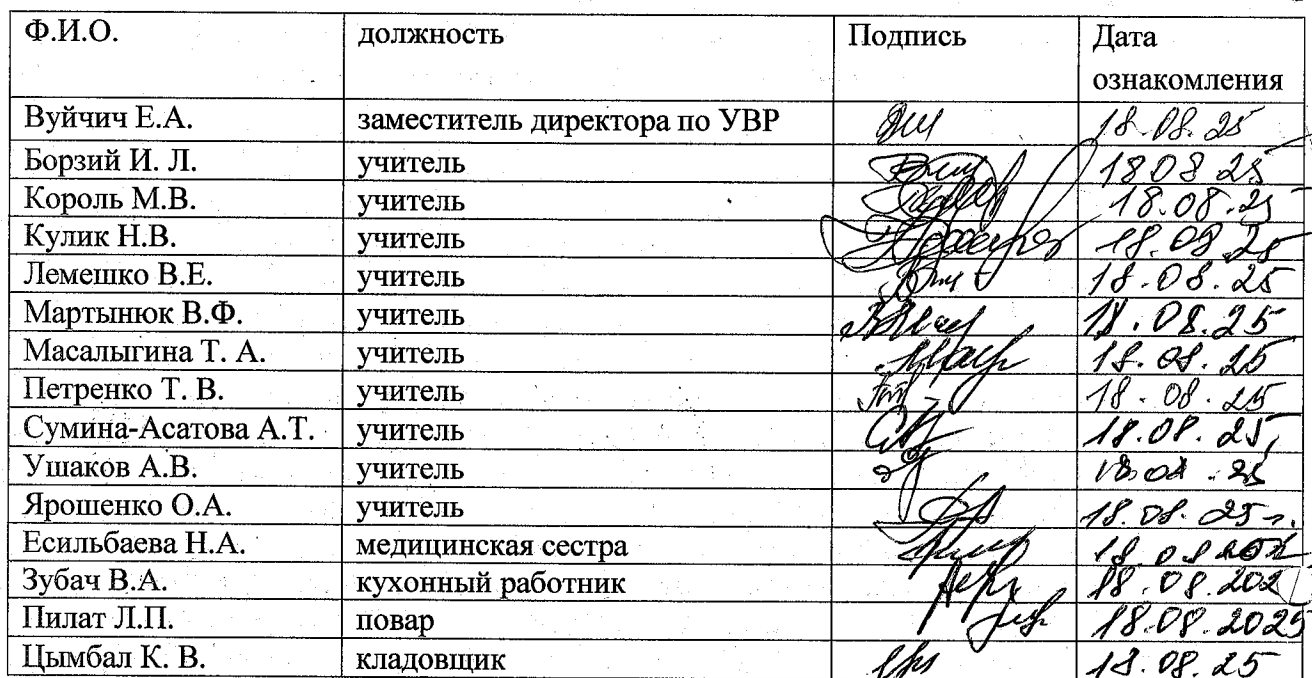 Ф.И.О. должность Подпись Дата
ознакомления
Вуйчич Е.А. заместитель директора по УВР 18.08.25
Борзий И. Л. учитель 18 08 25
Король М.В. учитель 18.08.25
Кулик Н.В. учитель 18.08.25
Лемешко В.Е. учитель 18.08.25
Мартынюк В.Ф. учитель 18.08.25
Масалыгина Т. А. учитель 18.08.25
Петренко Т. В. учитель 18.08.25
Сумина-Асатова А.Т. учитель 18.08.25
Ушаков А.В. учитель 18.08.25
Ярошенко О.А. учитель 18.08.25 г.
Есильбаева Н.А. медицинская сестра
Зубач В.А. кухонный работник
Пилат Л.П. повар 18.08.2025
Цымбал К. В. кладовщик 18.08.25